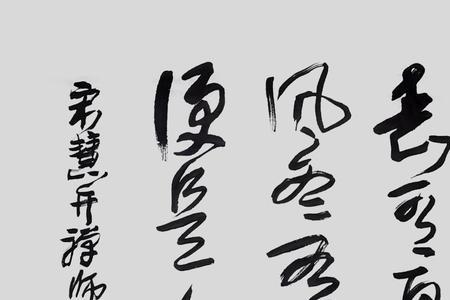 春有百
风冬有
便是
宋慧开禅师